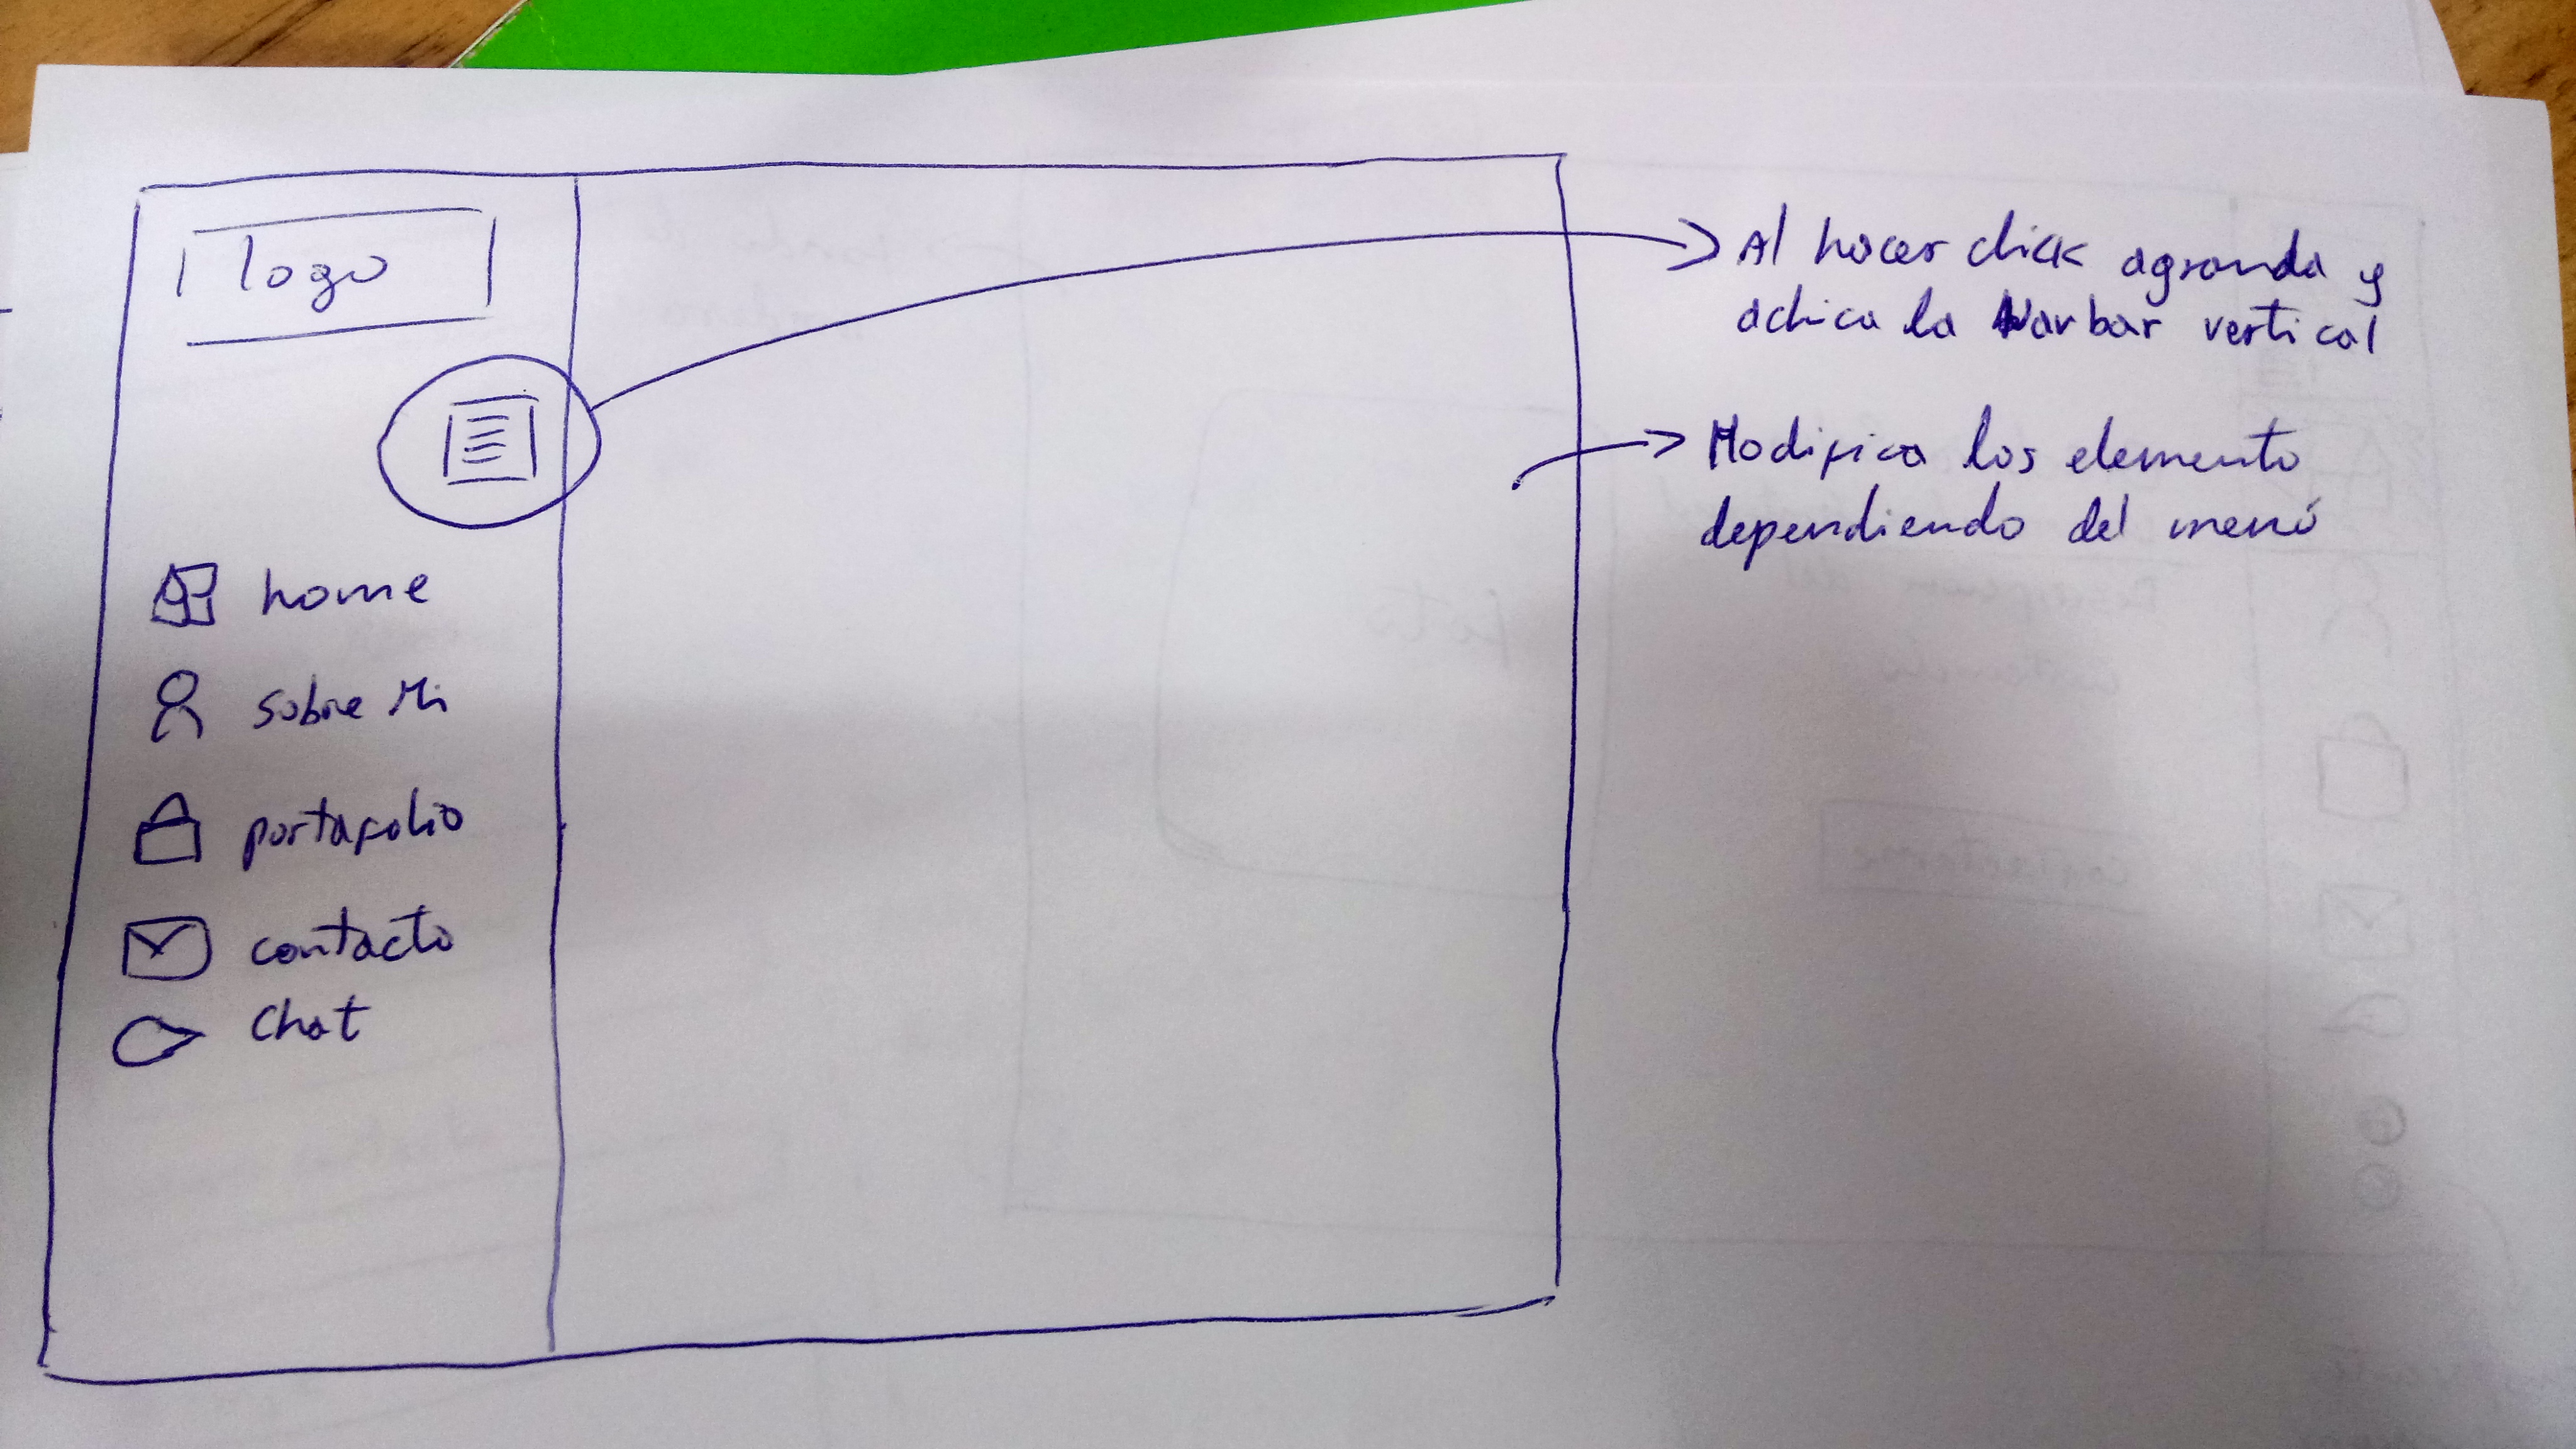 logo
home
sobre Mi
portafolio
contacto
chat
Al hacer click agranda y
achica la Navbar vertical
Modifica los elemento
dependiendo del menú